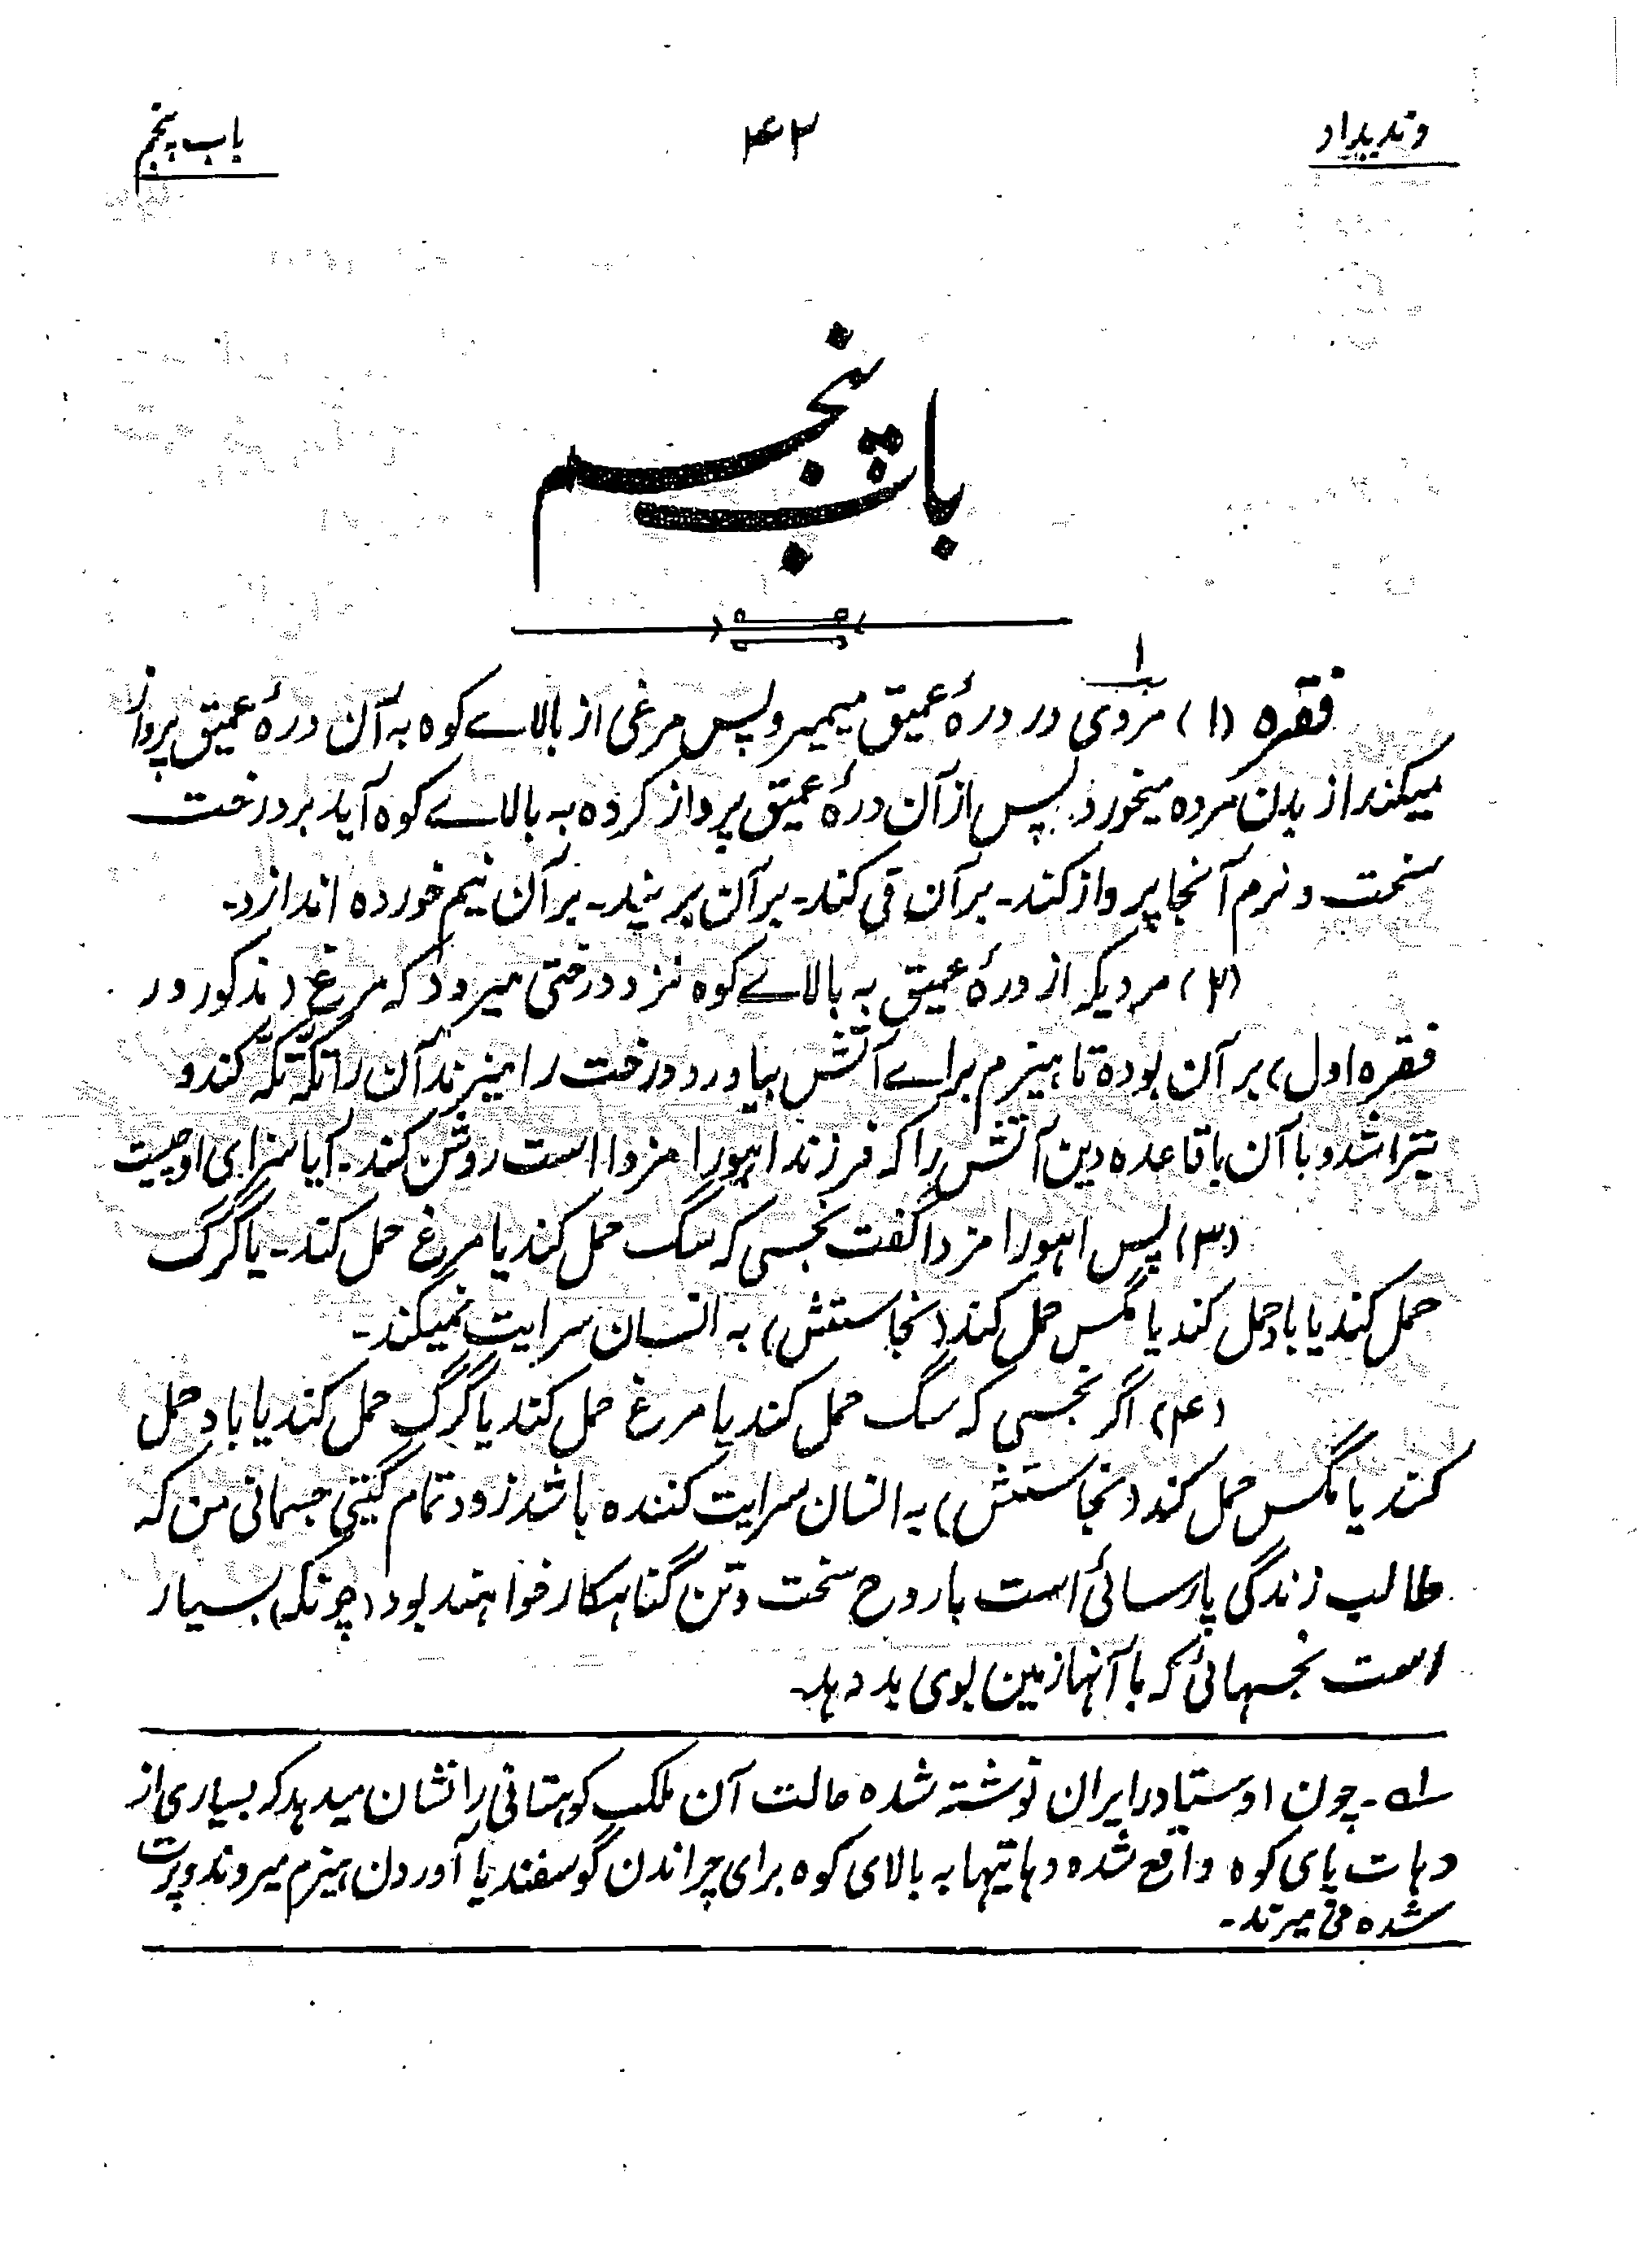 وندیداد
۴۲
باب پنجم
باب پنجم
فقره (۱) مردی در درهٔ عمیق میمیرد پس مرغی از بالاے کوه به آن درهٔ عمیق پرواز
میکند از بدن مرده میخورد پس از آن درهٔ عمیق پرواز کرده به بالاے کوه آید بر درخت
سخت و نرم آنجا پرواز کند- بر آن قی کند- بر آن پر نیند- بر آن نیم خورده اندازد-
(۲) مردیکه از درهٔ عمیق به بالاے کوه نزد درختی میرود که مرغ (مذکور در
فقره اول) بر آن بوده تا هیزم براے آتش بیاورد درخت را میزند آن را تکّه تکّه کند و
بتراشد و با آن باقاعده دین آتش را که فرزند اهورا مزدا است روشن کند- آیا سزای او چیست
(۳) پس اهورا مزدا گفت نجسی که سگ حمل کند یا مرغ حمل کند- یا گرگ
حمل کند یا باد حمل کند یا مگس حمل کند (نجاستش) به انسان سرایت نمیکند-
(۴) اگر نجسی که سگ حمل کند یا مرغ حمل کند یا گرگ حمل کند یا باد حمل
کند یا مگس حمل کند (نجاستش) به انسان سرایت کننده باشد زود تمام گیتی جسمانی من که
طالب زندگی پارسائی است با روح سخت و تن گناهکار خواهند بود (چونکه) بسیار
است نجسهائی که با آنها زمین بوی بد دهد-
۱- چون اوستا در ایران نوشته شده حالت آن ملک کوهستانی را نشان میدهد که بسیاری از
دهات پای کوه واقع شده دهاتیها به بالای کوه برای چراندن گوسفند یا آوردن هیزم میروند و پرت
شده می میرند-